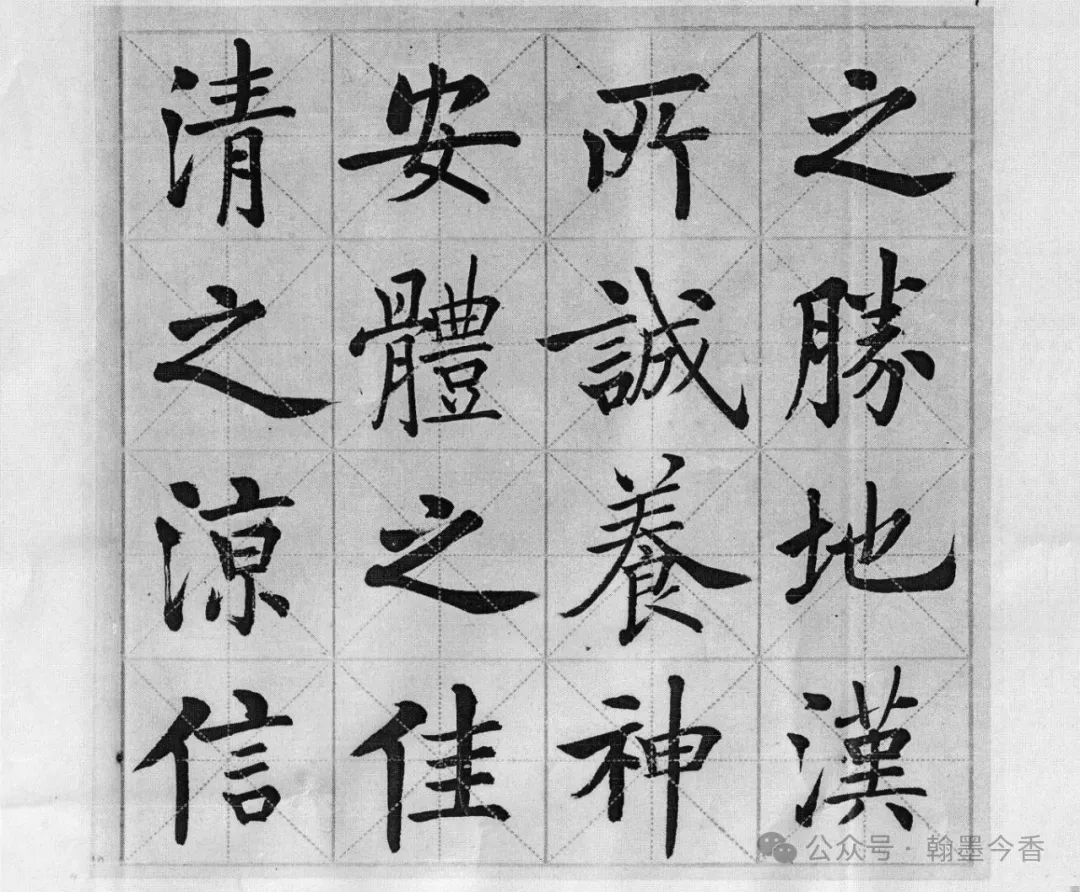 清之涼信
安體之佳
所誠養神
之勝地漢
公众号·翰墨今香